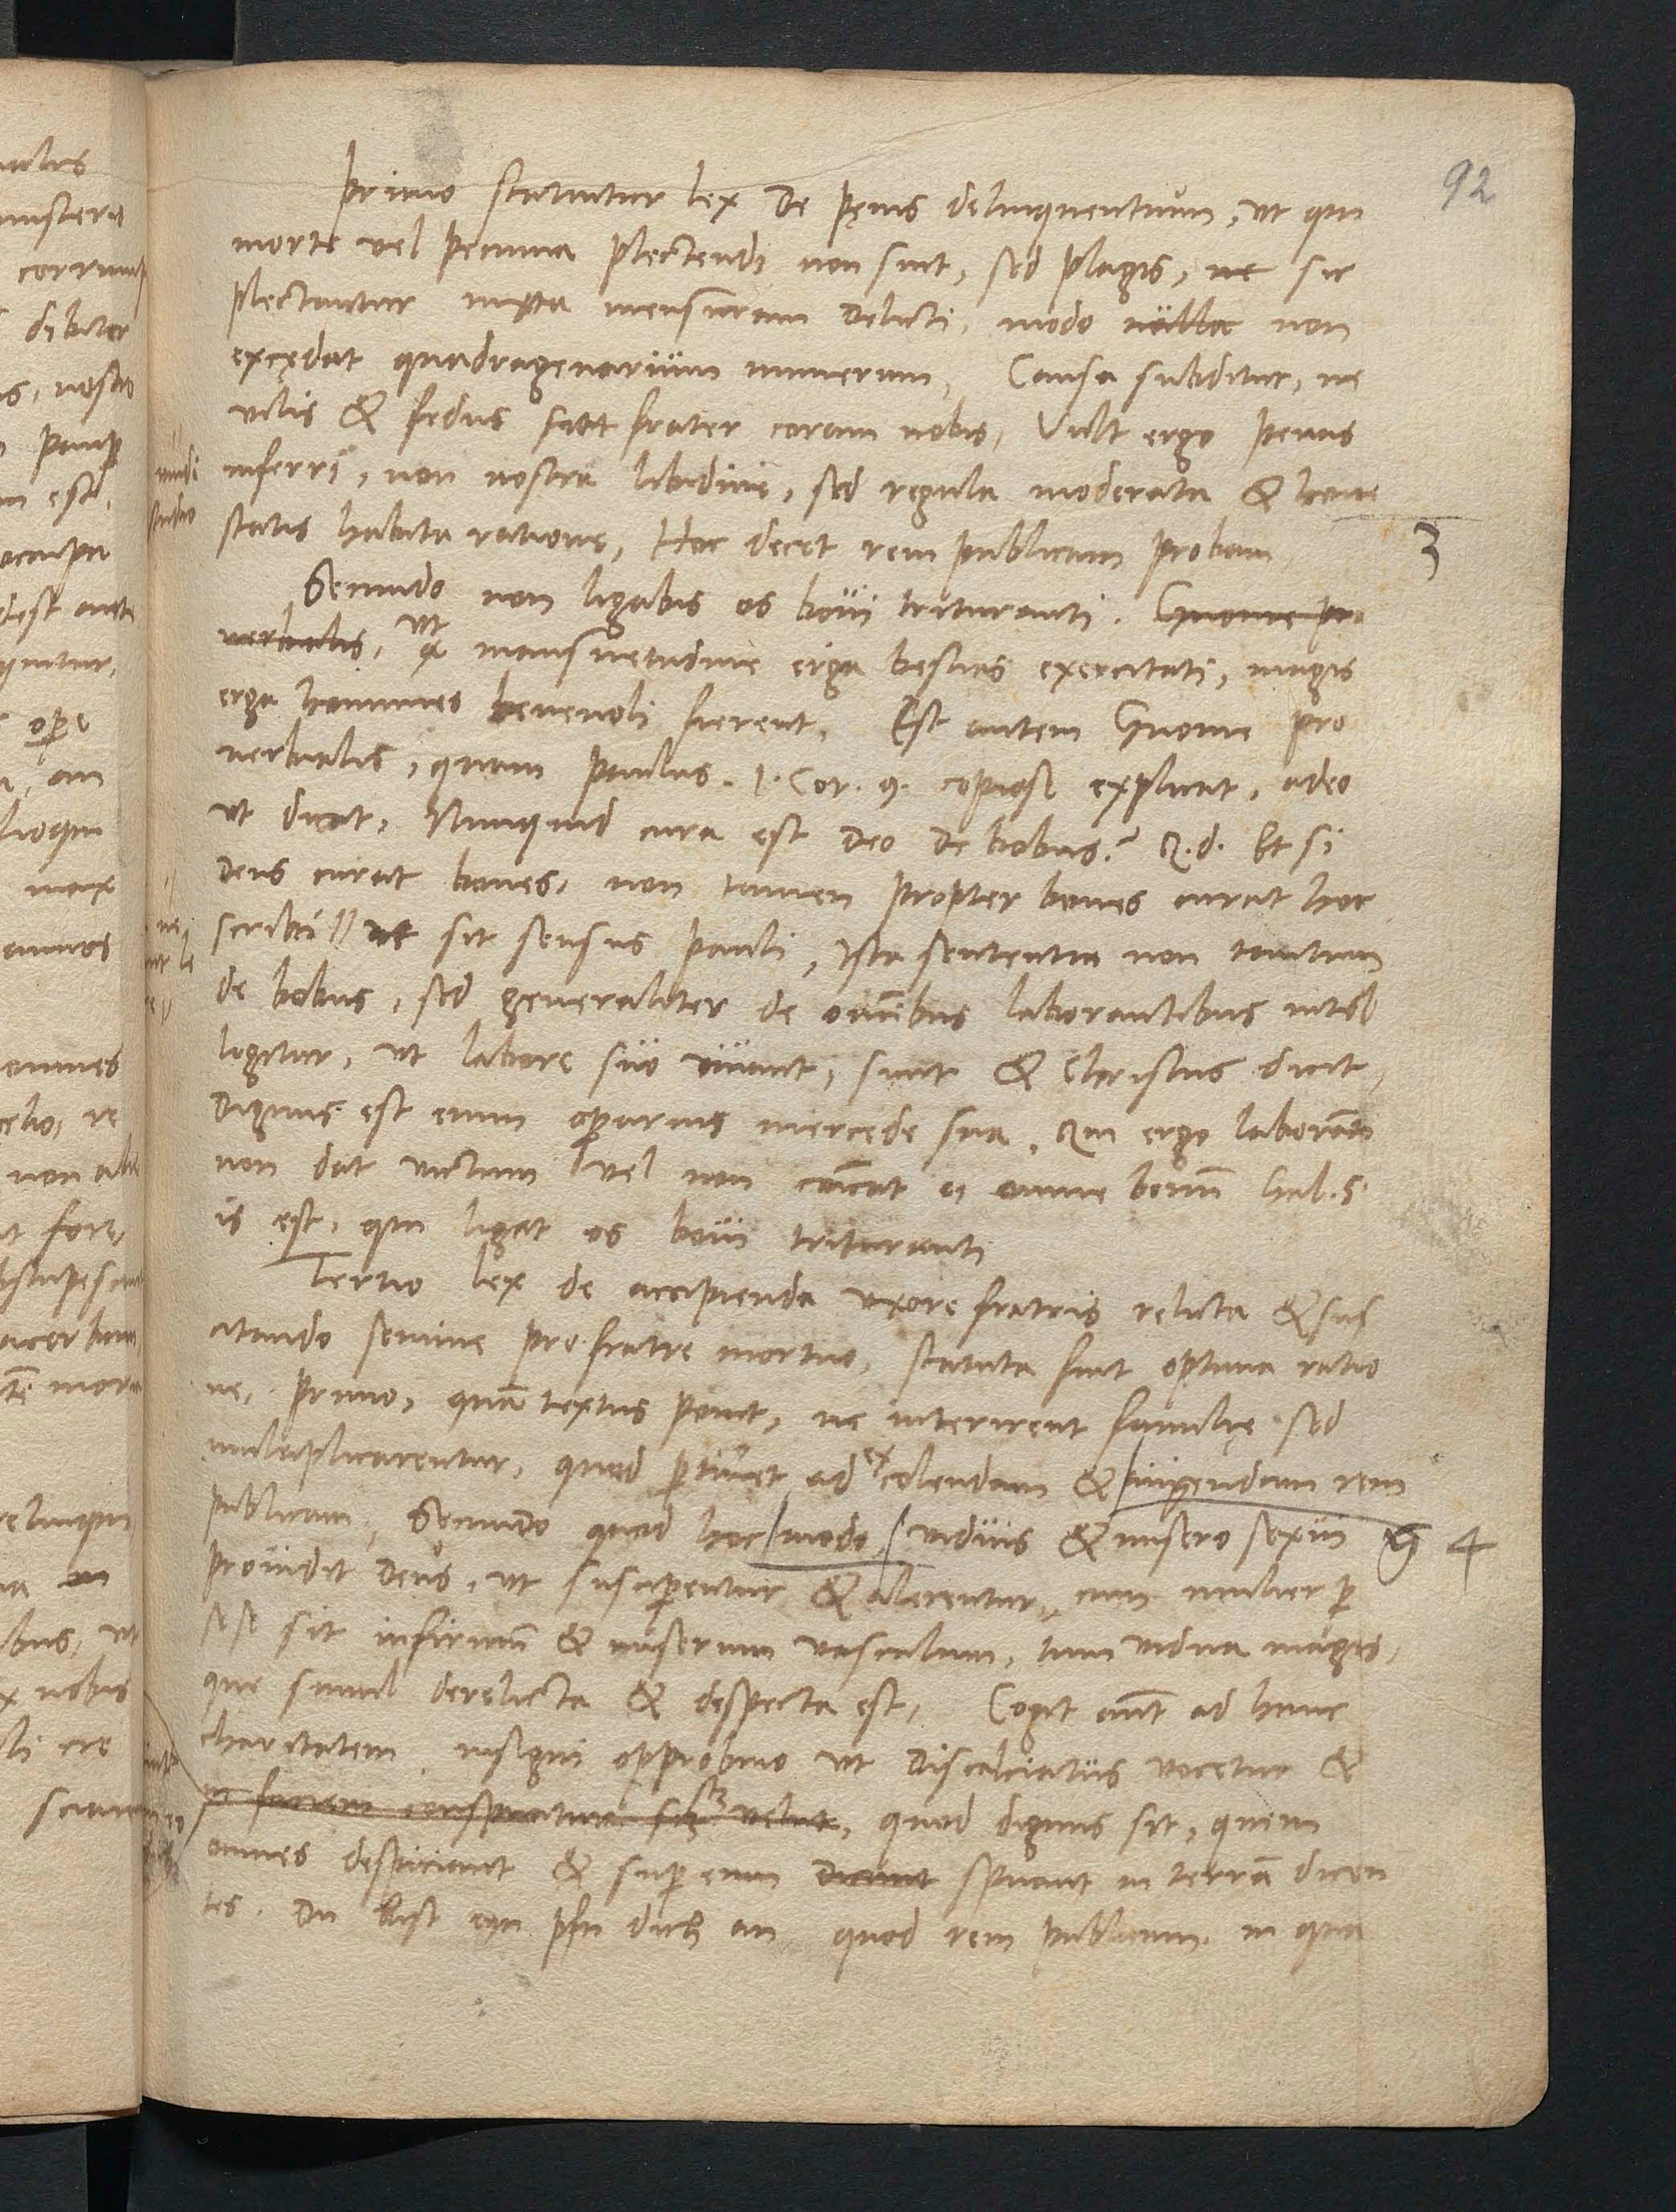 92
primo statuitur lex De pęnis delinquentium, vt qui
morte vel pecunia plectendi non sint, sed plagis, ne sic
plectantur iuxta mensuram Delicti, modo nulla non
excędat quadragenarium numerum, Causa subditur, ne
vilis & fedus fiat frater coram nobis, Vult ergo penas
inferri, non nostra libidine, sed regula moderata & hone
statis habita ratione, Hoc decet rem publicam probam
3
Secundo non ligabis os boui trituranti. Gnome pro
uerbialis, vt mansuetudine erga bestias exercitati, magis
erga homines beneuoli fierent, Est autem Gnome pro
uerbialis, quam paulus. 1. Cor. 9. copiose explicat, adeo
vt dicat, Nunquid cura est Deo De bobus? Q.d. Et si
Deus curat boues, non tamen propter boues curat hoc
scribi // ut sit sensus pauli, ista sententia non tantum
de bobus, sed generaliter de omnibus laborantibus intel
ligitur, vt labore suo viuant, sicut & Christus dicit,
Dignus est enim operarius mercede sua. Qui ergo laboranti
non dat victum vel non coicat ei omne bonum Gal. 5.
is est, qui ligat os boui trituranti
Tertio lex de accipienda vxore fratris relicta & sus
citando semine pro fratre mortuo, statuta fuit optima ratio
ne, primo, quam textus ponit, ne interirent familię sed
multiplicarentur, quod ptinet ad ex colendam & augendam rem
publicam, Secundo quod hoc modo viduis & misero sexui
4
prouidit Deus, vt susciperentur & alerentur, cum mulier p
se se sit infirmum & miserum vasculum, tum vidua magis,
que simul derelicta & despecta est, Cogit aut ad hanc
charitatem insigni opprobrio vt Discalciatus vocetur &
in faciem conspuatur velut, quod dignus sit, quem
omnes despiciant & super eum Dicant spuant in terra dicen
tes. Du bist eyn pfu dich an quod rem publicam in qua